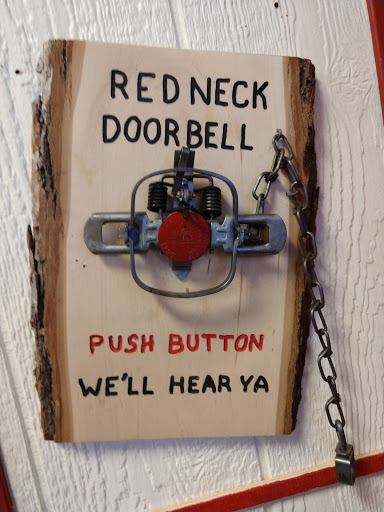 RED NECK
DOORBELL
PUSH BUTTON
WE'LL HEAR YA